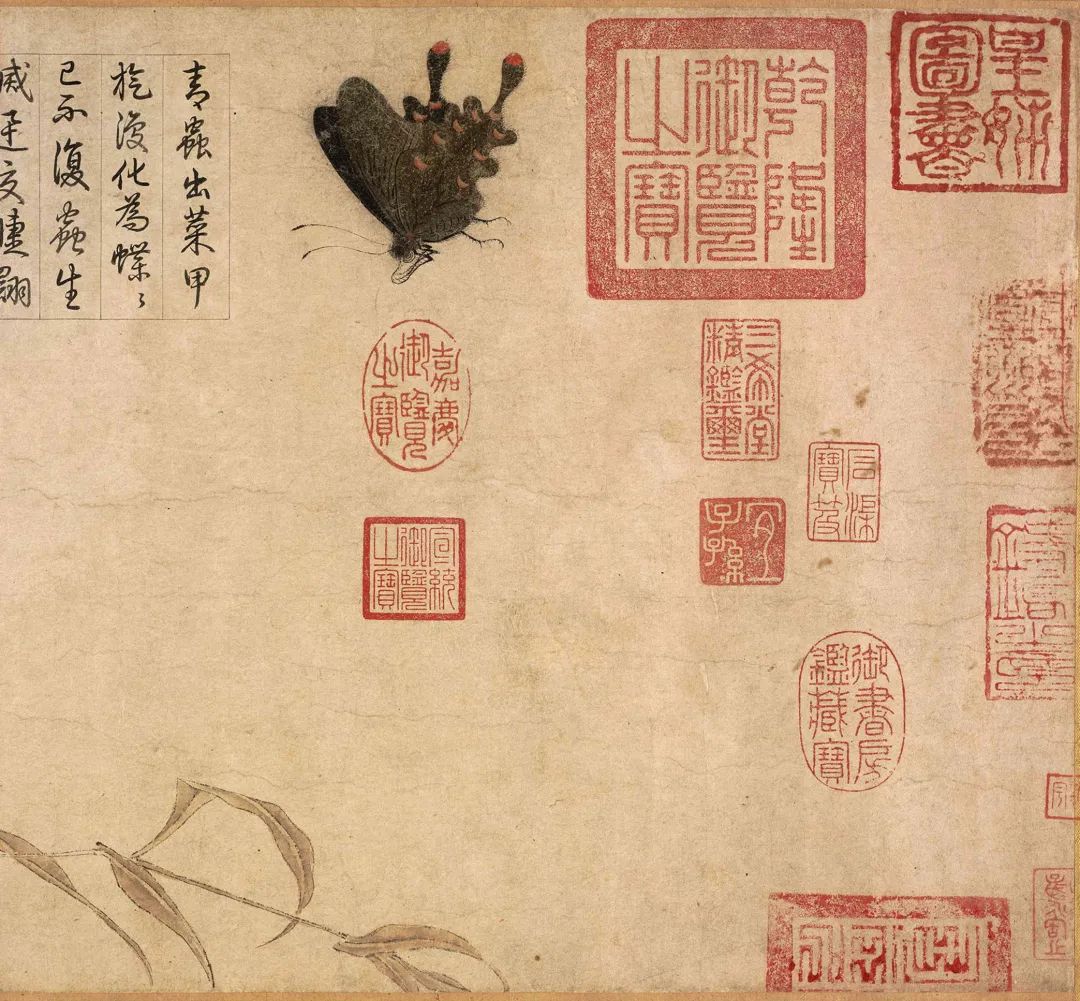 皇姊
圖書
乾隆
御覽
之寶
三希堂
精鑑璽
石渠
寶笈
宜
子孫
御書房
鑑藏寶
嘉慶
御覽
之寶
宣統
御覽
之寶
青蟲出菜甲
旋復化為蝶〻
已不復蟲生
滅交睫翾